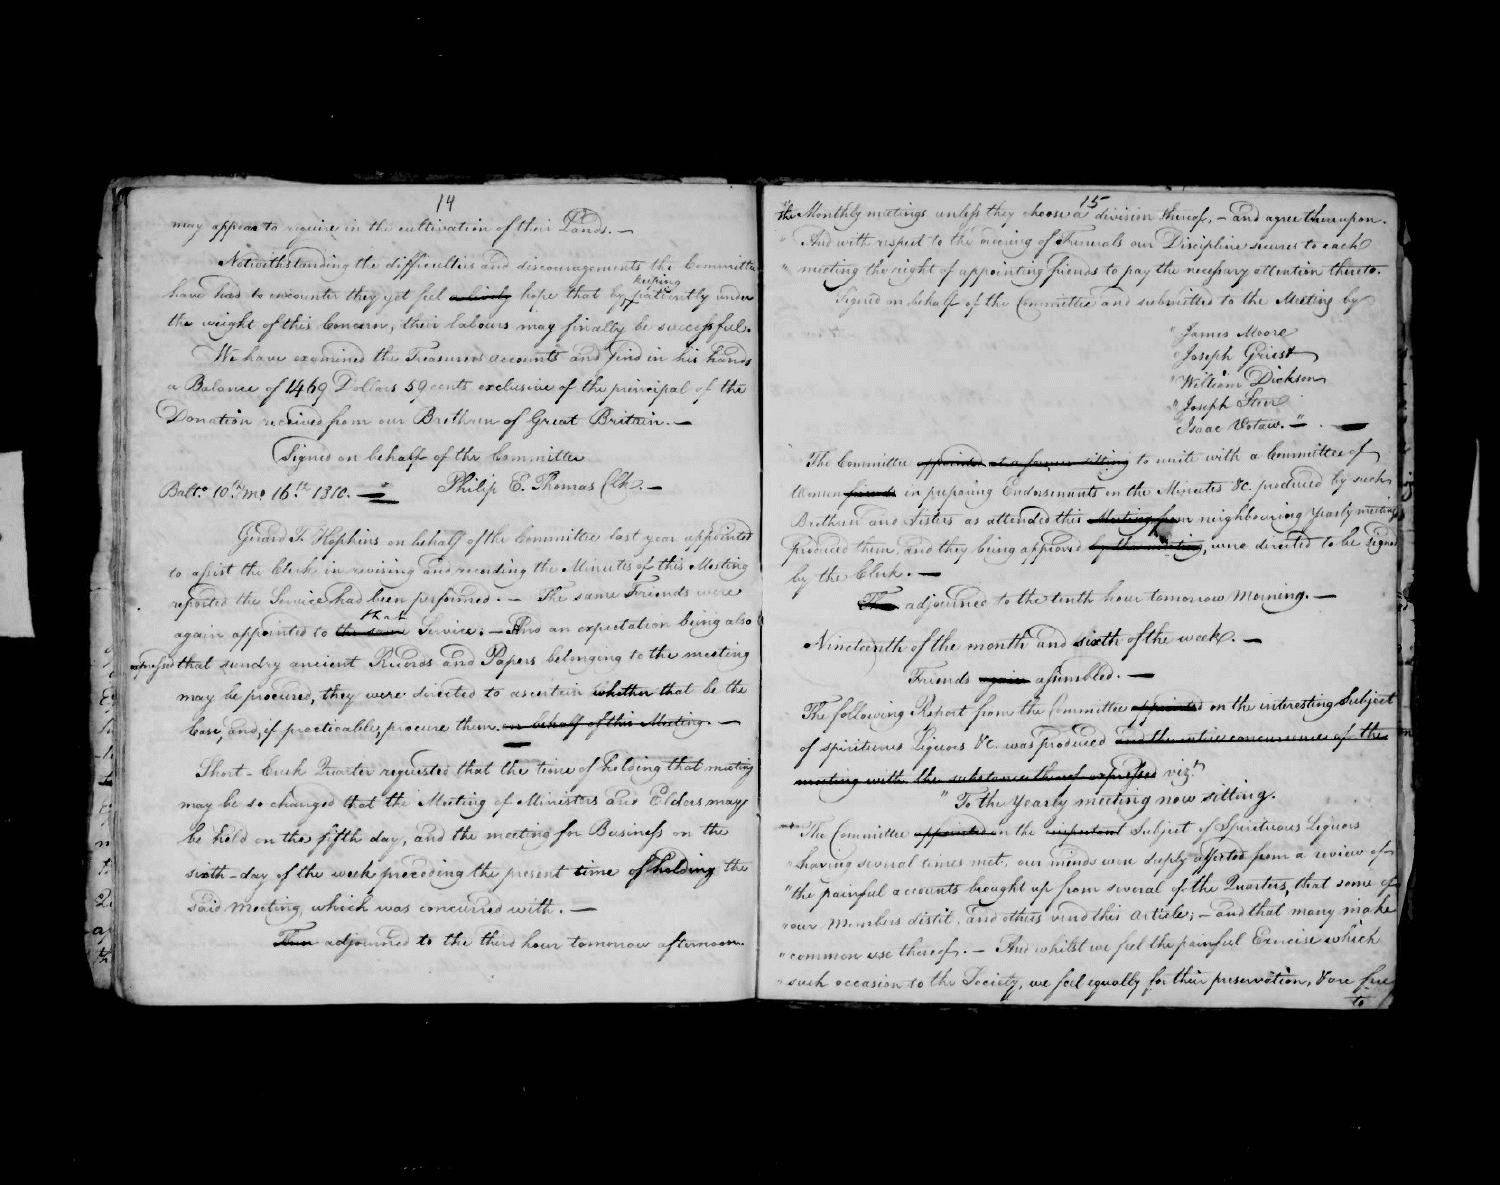 14
may appear to require in the cultivation of their Lands. —
Notwithstanding the difficulties and discouragements the Committee
keeping
have had to encounter they yet feel a lively hope that by patiently under
the weight of this Concern, their labours may finally be successful.
We have examined the Treasurers accounts and find in his hands
a Balance of 1469 Dollars 59 cents exclusive of the principal of the
Donation received from our Brethren of Great Britain. —
Signed on behalf of the Committee
Balto. 10th mo. 16th 1810. — Philip E. Thomas Clk. —
Gerard T. Hopkins on behalf of the Committee last year appointed
to assist the Clerk in revising and recording the Minutes of this Meeting
reported the Service had been performed. — The same Friends were
that
again appointed to the same Service; — And an expectation being also
expressed that sundry ancient Records and Papers belonging to the meeting
may be procured, they were directed to ascertain whether that be the
Case, and, if practicable, procure them. on behalf of this Meeting. —
Short-Creek Quarter requested that the time of holding that meeting
may be so changed that the Meeting of Ministers and Elders may
be held on the fifth day, and the meeting for Business on the
sixth-day of the week preceding the present time of holding the
said meeting, which was concurred with. —
Then adjourned to the third hour tomorrow afternoon.
15
the Monthly meetings unless they choose a division thereof, — and agree thereupon.
" And with respect to the care of Funerals our Discipline secures to each
" meeting the right of appointing friends to pay the necessary attention thereto.
Signed on behalf of the Committee and submitted to the Meeting by
" James Moore
" Joseph Griest
" William Dickson
" Joseph Steer
" Isaac Votaw. — " . —
The Committee appointed at a former sitting to unite with a Committee of
Women friends in preparing Endorsements on the Minutes &c. produced by such
Brethren and Sisters as attended this Meeting from neighbouring Yearly meetings
produced them, and they being approved by the meeting, were directed to be signed
by the Clerk. —
Then adjourned to the tenth hour tomorrow Morning. —
Nineteenth of the month and sixth of the week. —
Friends again assembled. —
The following Report from the Committee appointed on the interesting Subject
of spirituous Liquors &c. was produced and the entire concurrence of the
meeting with the substance thereof expressed vizt.
" To the Yearly meeting now sitting.
" The Committee appointed on the important Subject of Spirituous Liquors
" having several times met, our minds were deeply affected from a review of
" the painful accounts brought up from several of the Quarters, that some of
" our Members distil, and others vend this article; — and that many make
" common use thereof. — And whilst we feel the painful Exercise which
" such occasion to the Society, we feel equally for their preservation, & are free
to